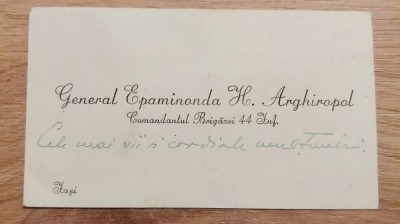 General Epaminonda H. Arghiropol
Comandantul Brigăzei 44 Inf.
Cele mai vii si cordiale multumiri.
Iași